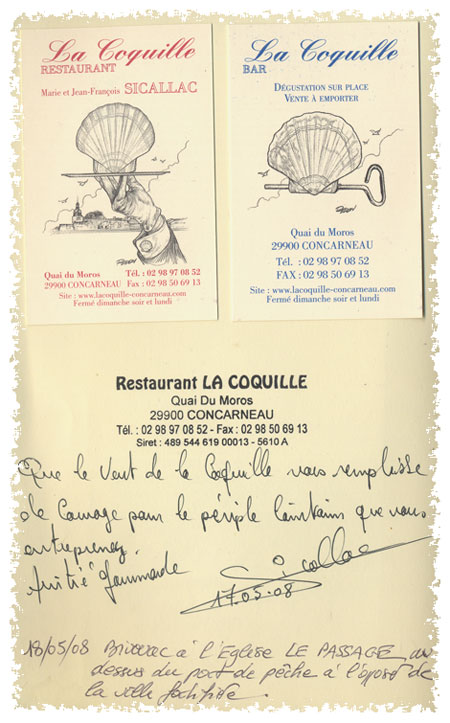 La Coquille
RESTAURANT
Marie et Jean-François SICALLAC
Quai du Moros Tél. : 02 98 97 08 52
29900 CONCARNEAU FAX : 02 98 50 69 13
Site : www.lacoquille-concarneau.com
Fermé dimanche soir et lundi
La Coquille
BAR
DÉGUSTATION SUR PLACE
VENTE À EMPORTER
Quai du Moros
29900 CONCARNEAU
Tél. : 02 98 97 08 52
FAX : 02 98 50 69 13
Site : www.lacoquille-concarneau.com
Fermé dimanche soir et lundi
Restaurant LA COQUILLE
Quai Du Moros
29900 CONCARNEAU
Tél. : 02 98 97 08 52 - Fax : 02 98 50 69 13
Siret : 489 544 619 00013 - 5610 A
Que le Vent de la Coquille vous remplisse
de Courage pour le périple lointains que vous
entreprenez.
Amitié Gourmande
Sicallac
17.05.08
18/05/08 BIVOUAC à l'Eglise LE PASSAGE au
dessus du port de pêche à l'opposé de
la ville fortifiée.